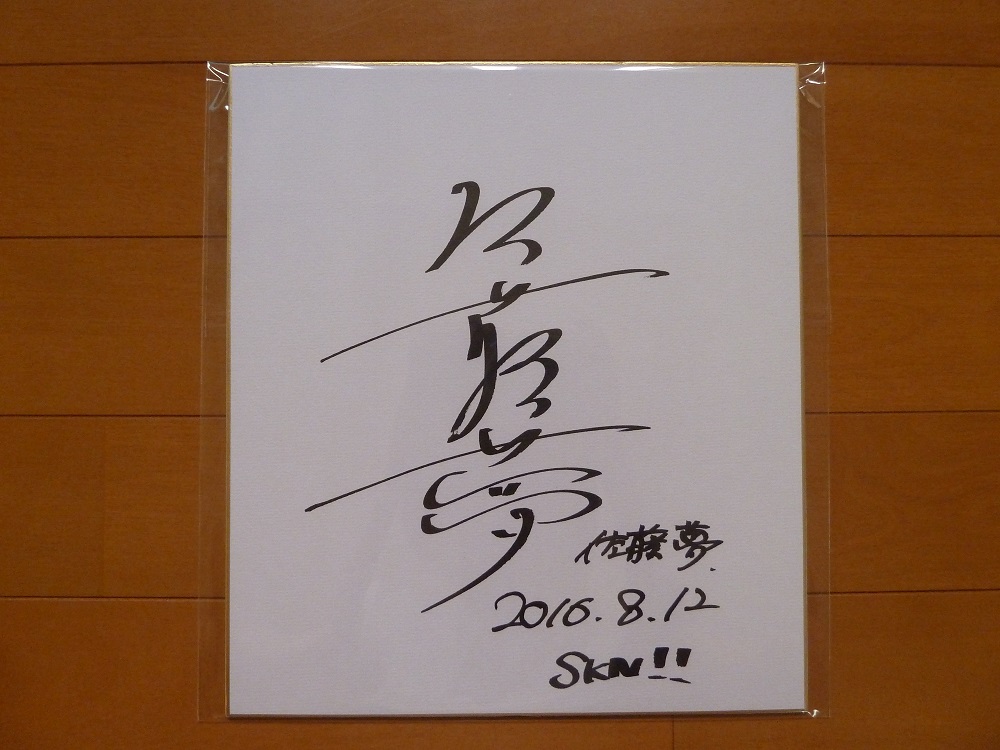 佐藤夢
佐藤夢.
2016.8.12
SKN!!